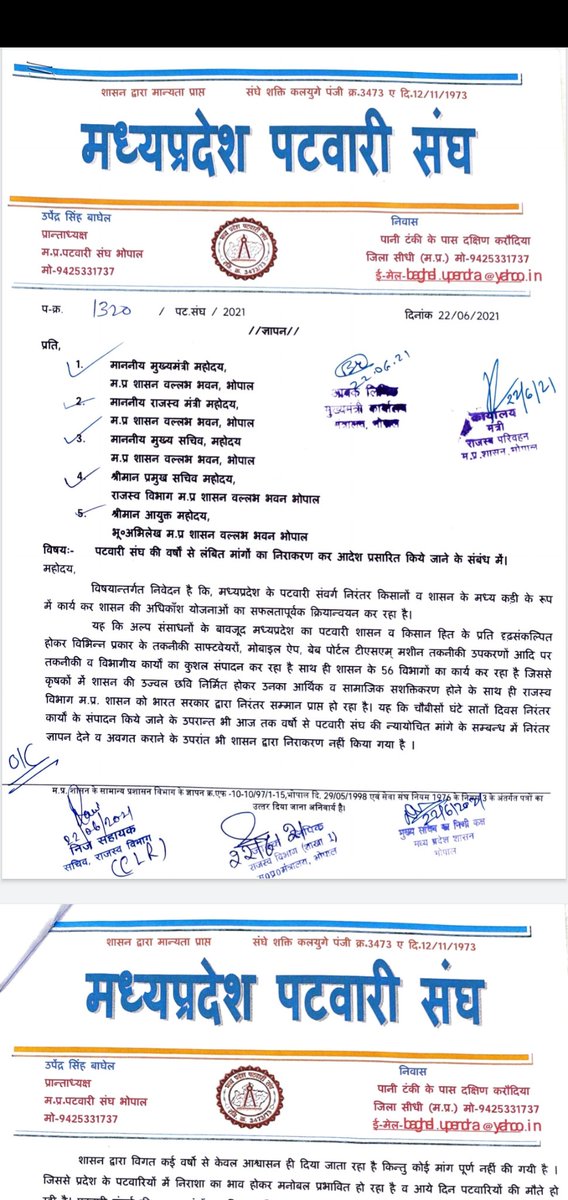 शासन द्वारा मान्यता प्राप्त संघे शक्ति कलयुगे पंजी क्र.3473 ए दि.12/11/1973
मध्यप्रदेश पटवारी संघ
उपेंद्र सिंह बाघेल
प्रान्ताध्यक्ष
म.प्र.पटवारी संघ भोपाल
मो-9425331737
निवास
पानी टंकी के पास दक्षिण करौदिया
जिला सीधी (म.प्र.) मो-9425331737
ई-मेल-baghel.upendra@yahoo.in
प-क्र. 1320 / पट.संघ / 2021 दिनांक 22/06/2021
//ज्ञापन//
प्रति,
1. माननीय मुख्यमंत्री महोदय,
म.प्र शासन वल्लभ भवन, भोपाल
2. माननीय राजस्व मंत्री महोदय,
म.प्र शासन वल्लभ भवन, भोपाल
3. माननीय मुख्य सचिव, महोदय
म.प्र शासन वल्लभ भवन, भोपाल
4. श्रीमान प्रमुख सचिव महोदय,
राजस्व विभाग म.प्र शासन वल्लभ भवन भोपाल
5. श्रीमान आयुक्त महोदय,
भू०अभिलेख म.प्र शासन वल्लभ भवन भोपाल
22.06.21
मुख्यमंत्री कार्यालय
भोपाल
22/6/21
कार्यालय
मंत्री
राजस्व परिवहन
म.प्र.शासन,भोपाल
विषयः- पटवारी संघ की वर्षो से लंबित मांगों का निराकरण कर आदेश प्रसारित किये जाने के संबंध में।
महोदय,
विषयान्तर्गत निवेदन है कि, मध्यप्रदेश के पटवारी संवर्ग निरंतर किसानों व शासन के मध्य कड़ी के रूप
में कार्य कर शासन की अधिकाँश योजनाओं का सफलतापूर्वक क्रियान्वयन कर रहा है।
यह कि अल्प संसाधनों के बावजूद मध्यप्रदेश का पटवारी शासन व किसान हित के प्रति दृढसंकल्पित
होकर विभिन्न प्रकार के तकनीकी साफ्टवेयरों, मोबाइल ऐप, बेब पोर्टल टीएसएम् मशीन तकनीकी उपकरणों आदि पर
तकनीकी व विभागीय कार्यो का कुशल संपादन कर रहा है साथ ही शासन के 56 विभागों का कार्य कर रहा है जिससे
कृषकों में शासन की उज्वल छवि निर्मित होकर उनका आर्थिक व सामाजिक सशक्तिकरण होने के साथ ही राजस्व
विभाग म.प्र. शासन को भारत सरकार द्वारा निरंतर सम्मान प्राप्त हो रहा है। यह कि चौबीसों घंटे सातों दिवस निरंतर
कार्यों के संपादन किये जाने के उपरान्त भी आज तक वर्षो से पटवारी संघ की न्यायोचित मांगे के सम्बन्ध में निरंतर
ज्ञापन देने व अवगत कराने के उपरांत भी शासन द्वारा निराकरण नहीं किया गया है ।
O/C
म.प्र. शासन के सामान्य प्रशासन विभाग के ज्ञापन क्र.एफ -10-10/97/1-15,भोपाल दि. 29/05/1998 एवं सेवा संघ नियम 1976 के नियम 3 के अंतर्गत पत्रों का
उत्तर दिया जाना अनिवार्य है।
22/06/2021
निज सहायक
सचिव, राजस्व विभाग
(CLR)
22/6/21
राजस्व विभाग (शाखा 1)
म०प्र०मंत्रालय, भोपाल
22/6/2021
मुख्य सचिव का निजी कक्ष
मध्य प्रदेश शासन
भोपाल
शासन द्वारा मान्यता प्राप्त संघे शक्ति कलयुगे पंजी क्र.3473 ए दि.12/11/1973
मध्यप्रदेश पटवारी संघ
उपेंद्र सिंह बाघेल
प्रान्ताध्यक्ष
म.प्र.पटवारी संघ भोपाल
मो-9425331737
निवास
पानी टंकी के पास दक्षिण करौदिया
जिला सीधी (म.प्र.) मो-9425331737
ई-मेल-baghel.upendra@yahoo.in
शासन द्वारा विगत कई वर्षो से केवल आश्वासन ही दिया जाता रहा है किन्तु कोई मांग पूर्ण नहीं की गयी है ।
जिससे प्रदेश के पटवारियों में निराशा का भाव होकर मनोबल प्रभावित हो रहा है व आये दिन पटवारियों की मौते हो